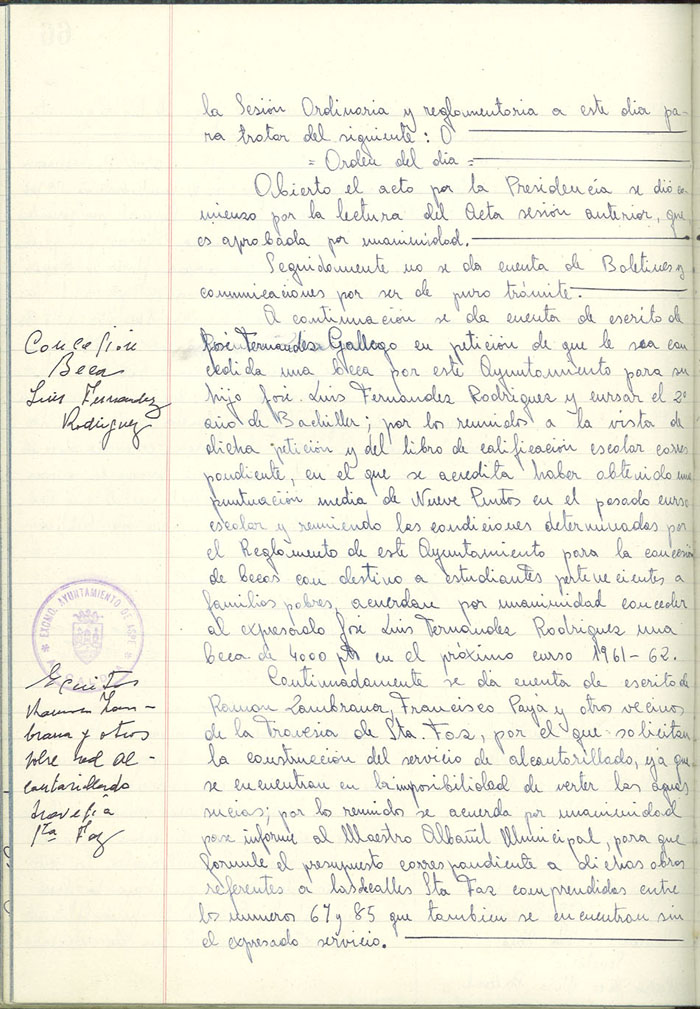 la Sesión Ordinaria y reglamentaria a este dia pa-
ra tratar del siguiente: O
= Orden del dia =
Abierto el acto por la Presidencia se dió co
mienzo por la lectura del Acta sesión anterior, que
es aprobada por unanimidad.
Seguidamente no se da cuenta de Boletines y
comunicaciones por ser de puro trámite.
A continuación se da cuenta de escrito de
José Fernández Gallego en petición de que le sea con
cedida una beca por este Ayuntamiento para su
hijo José Luis Fernandez Rodriguez y cursar el 2º
año de Bachiller; por los reunidos a la vista de
dicha petición y del libro de calificación escolar corres
pondiente, en el que se acredita haber obtenido una
puntuación media de Nueve Puntos en el pasado curso
escolar y reuniendo las condiciones determinadas por
el Reglamento de este Ayuntamiento para la concesión
de becas con destino a estudiantes pertenecientes a
familias pobres, acuerdan por unanimidad conceder
al expresado José Luis Fernandez Rodriguez una
beca de 4000 pts en el próximo curso 1961-62.
Continuadamente se da cuenta de escrito de
Ramon Zambrana, Francisco Payá y otros vecinos
de la Travesia de Sta. Faz, por el que solicitan
la construcción del servicio de alcantarillado, ya que
se encuentran en la imposibilidad de verter las aguas
sucias; por los reunidos se acuerda por unanimidad
pase informe al Maestro Albañil Municipal, para que
formule el presupuesto correspondiente a dichas obras
referentes a las calles Sta Faz comprendidas entre
los numeros 67 y 85 que tambien se encuentran sin
el expresado servicio.
Concesion
Beca
Luis Fernandez
Rodriguez
EXCMO. AYUNTAMIENTO DE ASP
Escritos
Ramon Zam-
brana y otros
sobre red al-
cantarillado
travesia
Sta Faz